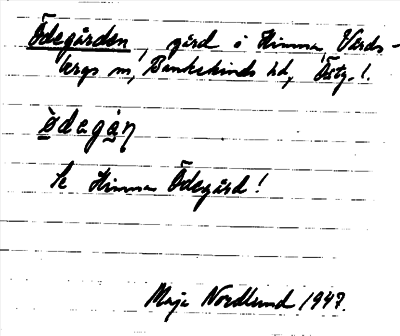 Ödegården, gård i Himna, Vårds-
bergs sn, Bankekinds hd, Östg. l.
ödagán
Se Himna Ödegård!
Maja Nordlund 1947.